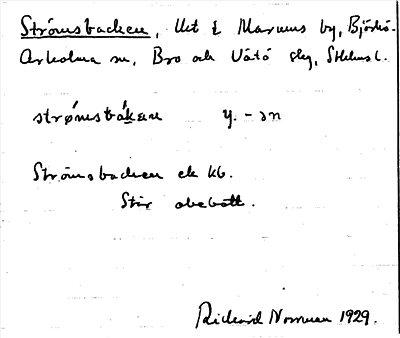 Strömsbacken, Utt t Marums by, Björkö-
Arholma sn, Bro och Vätö skg, Sthlms l.
strǿmsbákan y. -ən
Strömsbacken ek kb.
Står obebott.
Rickard Norman 1929.